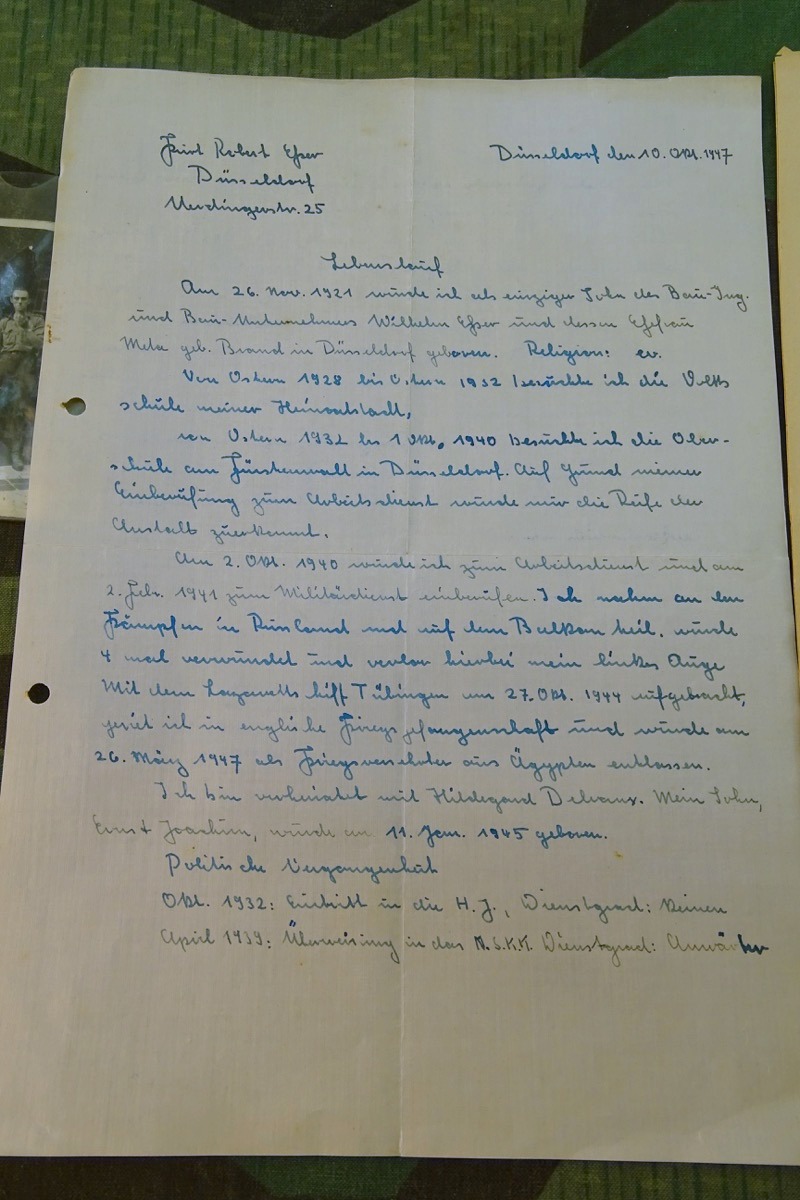 Kurt Robert Esser
Düsseldorf den 10. Okt. 1947
Düsseldorf
Uerdingerstr. 25
Lebenslauf
Am 26. Nov. 1921 wurde ich als einziger Sohn des Bau-Ing.
und Bau-Unternehmers Wilhelm Esser und dessen Ehefrau
Meta geb. Brand in Düsseldorf geboren. Religion: ev.
Von Ostern 1928 bis Ostern 1932 besuchte ich die Volks
schule meiner Heimatstadt,
von Ostern 1932 bis 1 Okt. 1940 besuchte ich die Ober-
schule am Fürstenwall in Düsseldorf. Auf Grund meiner
Einberufung zum Arbeitsdienst wurde mir die Reife der
Anstalt zuerkannt.
Am 2. Okt. 1940 wurde ich zum Arbeitsdienst und am
2. Febr. 1941 zum Militärdienst einberufen. Ich nahm an den
Kämpfen in Russland und auf dem Balkan teil, wurde
4 mal verwundet und verlor hierbei mein linkes Auge
Mit dem Lazarettschiff Tübingen am 27. Okt. 1944 aufgebracht,
geriet ich in englische Kriegsgefangenschaft und wurde am
26. März 1947 als Kriegsversehrter aus Ägypten entlassen.
Ich bin verheiratet mit Hildegard Delvaux. Mein Sohn,
Ernst Joachim, wurde am 11. Jan. 1945 geboren.
Politische Vergangenheit
Okt. 1932: Eintritt in die H.J., Dienstgrad: Keinen
April 1939: Überweisung in das N.S.K.K. Dienstgrad: Anwärter